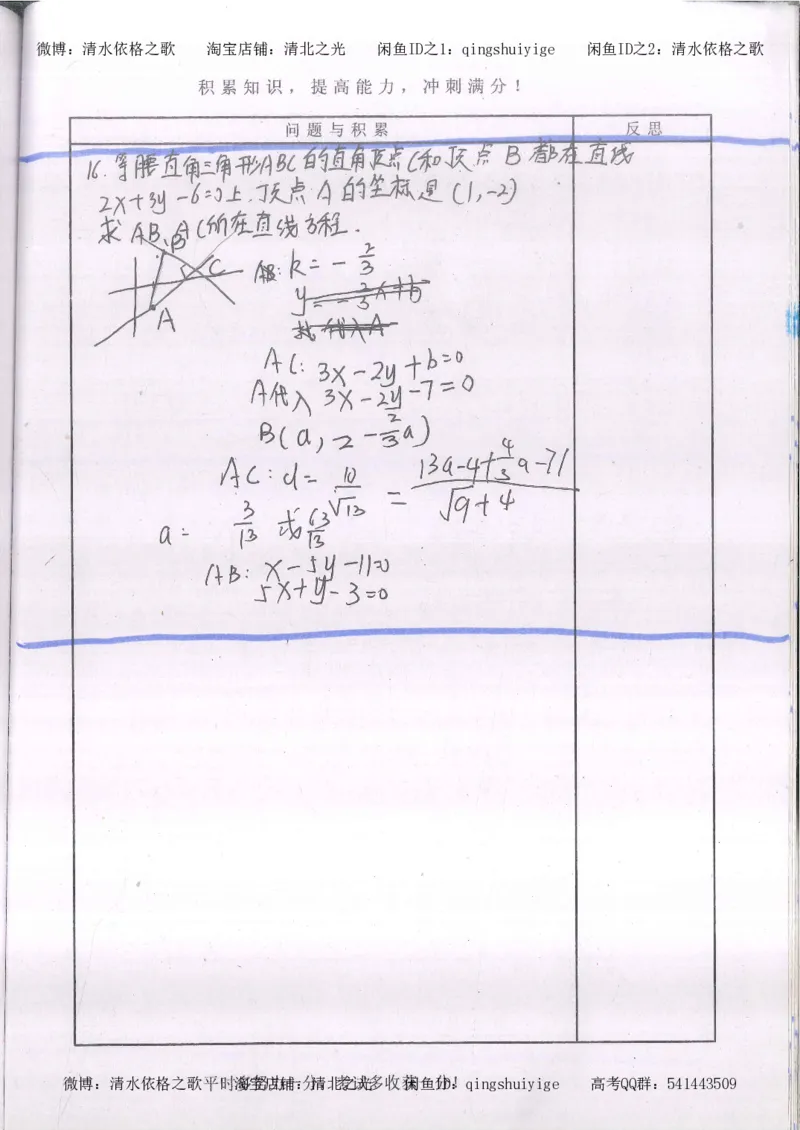 微博：清水依格之歌 淘宝店铺：清北之光 闲鱼ID之1：qingshuiyige 闲鱼ID之2：清水依格之歌
积累知识，提高能力，冲刺满分！
问题与积累 反思
16.等腰直角三角形ABC的直角顶点C和顶点B都在直线
2x+3y-6=0上.顶点A的坐标是(1,-2)
求AB、AC所在直线方程.
B
C
A
k=-2/3
AC: 3x-2y+b=0
A代入 3x-2y-7=0
B(a, 2-2/3a)
AC: d=10/√13 = |3a-4+4/3a-7|/√9+4
a= 3/13 或 63/13
AB: x-5y-11=0
5x+y-3=0
微博：清水依格之歌平时 淘宝店铺：清北之光 多收获 闲鱼ID：qingshuiyige 高考QQ群：541443509